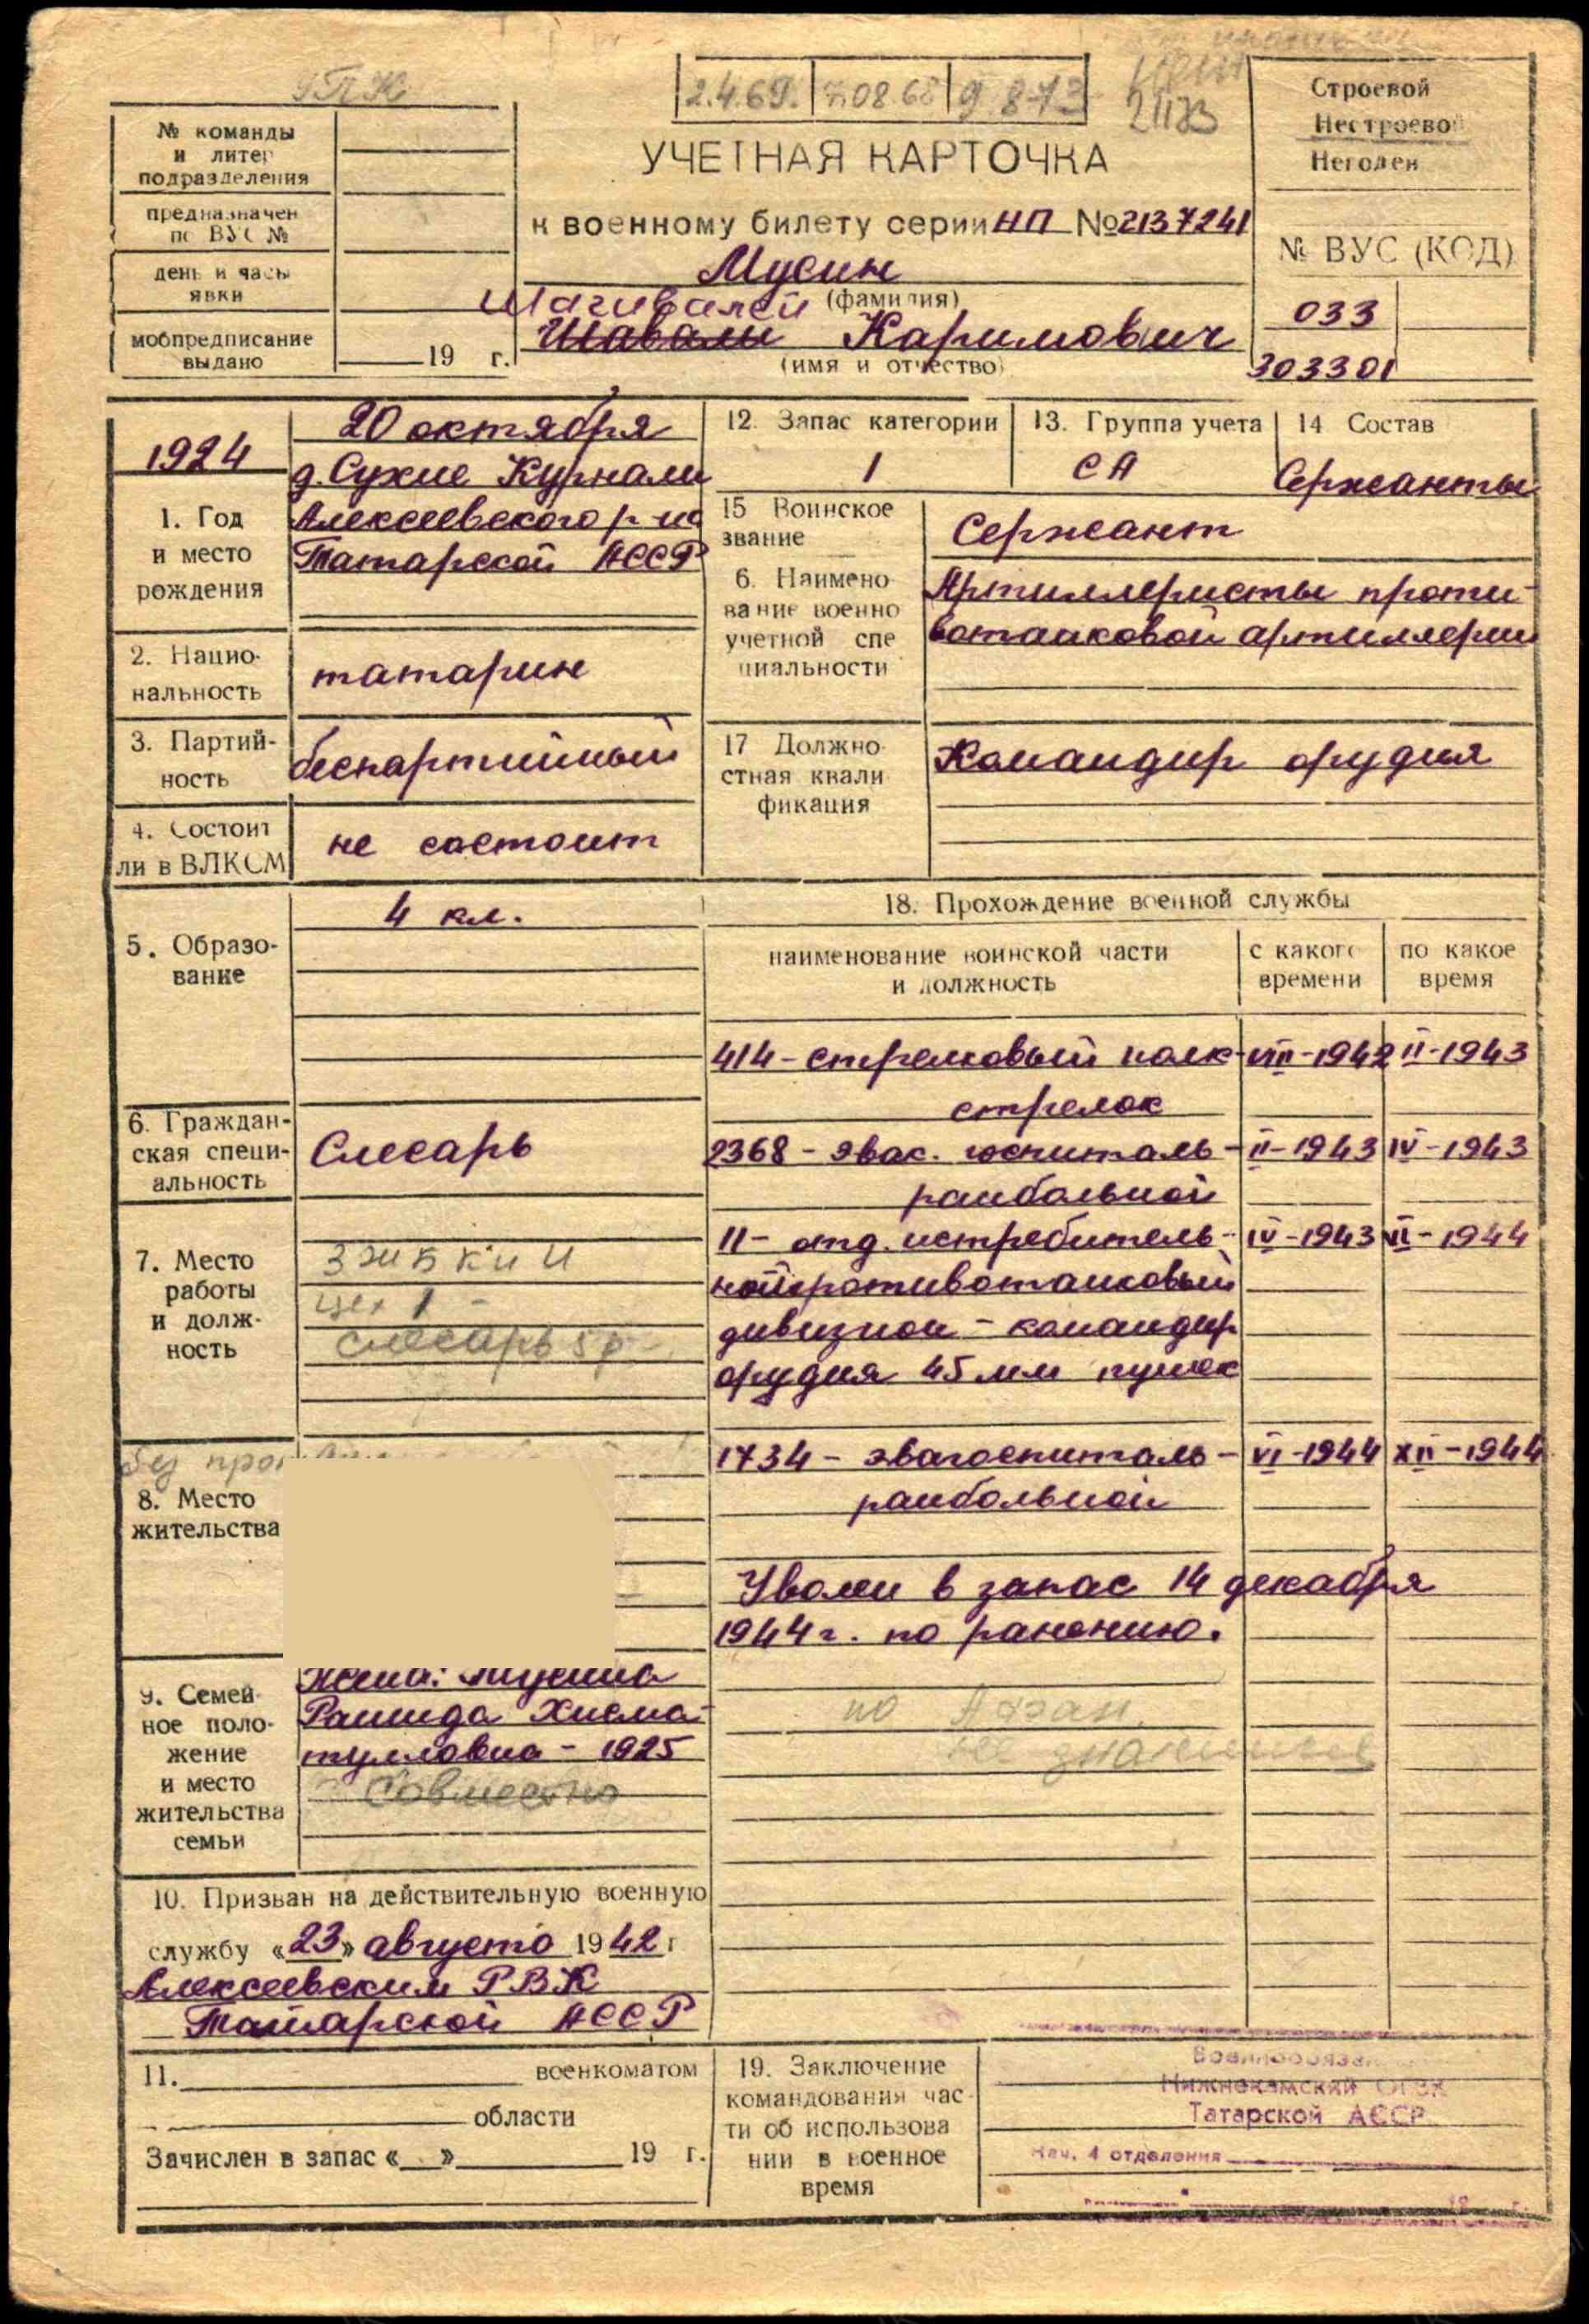 2.4.69.
9 8 73
№ команды
и литер
подразделения
предназначен
по ВУС №
день и часы
явки
мобпредписание
выдано
19 г.
УЧЕТНАЯ КАРТОЧКА
к военному билету серии НП № 2137241
Мусин
(фамилия)
Шагивалей
Шавали Каримович
(имя и отчество)
Строевой
Нестроевой
Негоден
№ ВУС (КОД)
033
303301
1924
1. Год
и место
рождения
20 октября
д. Сухие Курнали
Алексеевского р-на
Татарской АССР
2. Нацио-
нальность
татарин
3. Партий-
ность
беспартийный
4. Состоит
ли в ВЛКСМ
не состоит
5. Образо-
вание
4 кл.
6. Граждан-
ская специ-
альность
Слесарь
7. Место
работы
и долж-
ность
цех 1
слесарь 5 р.
без
8. Место
жительства
9. Семей-
ное поло-
жение
и место
жительства
семьи
Жена: Мусина
Рашида Хисма-
тулловна - 1925
Совместно
10. Призван на действительную военную
службу «23» августа 1942 г
Алексеевским РВК
Татарской АССР
11. военкоматом
области
Зачислен в запас « » 19 г.
12. Запас категории
1
13. Группа учета
СА
14 Состав
Сержанты
15 Воинское
звание
Сержант
6. Наимено
вание военно
учетной спе
циальности
Артиллеристы проти-
вотанковой артиллерии
17 Должно-
стная квали
фикация
Командир орудия
18. Прохождение военной службы
наименование воинской части
и должность
с какого
времени
по какое
время
414 - стрелковый полк - VIII-1942 II-1943
стрелок
2368 - эвас. госпиталь - II-1943 IV-1943
ранбольной
11 - отд. истребитель- IV-1943 VI-1944
ной противотанковый
дивизион - командир
орудия 45 мм пушек
1734 - эвагоспиталь - VI-1944 XII-1944
ранбольной
Уволен в запас 14 декабря
1944 г. по ранению.
19. Заключение
командования час-
ти об использова
нии в военное
время
Нижнекамский ОГВК
Татарской АССР
Нач. 4 отделения